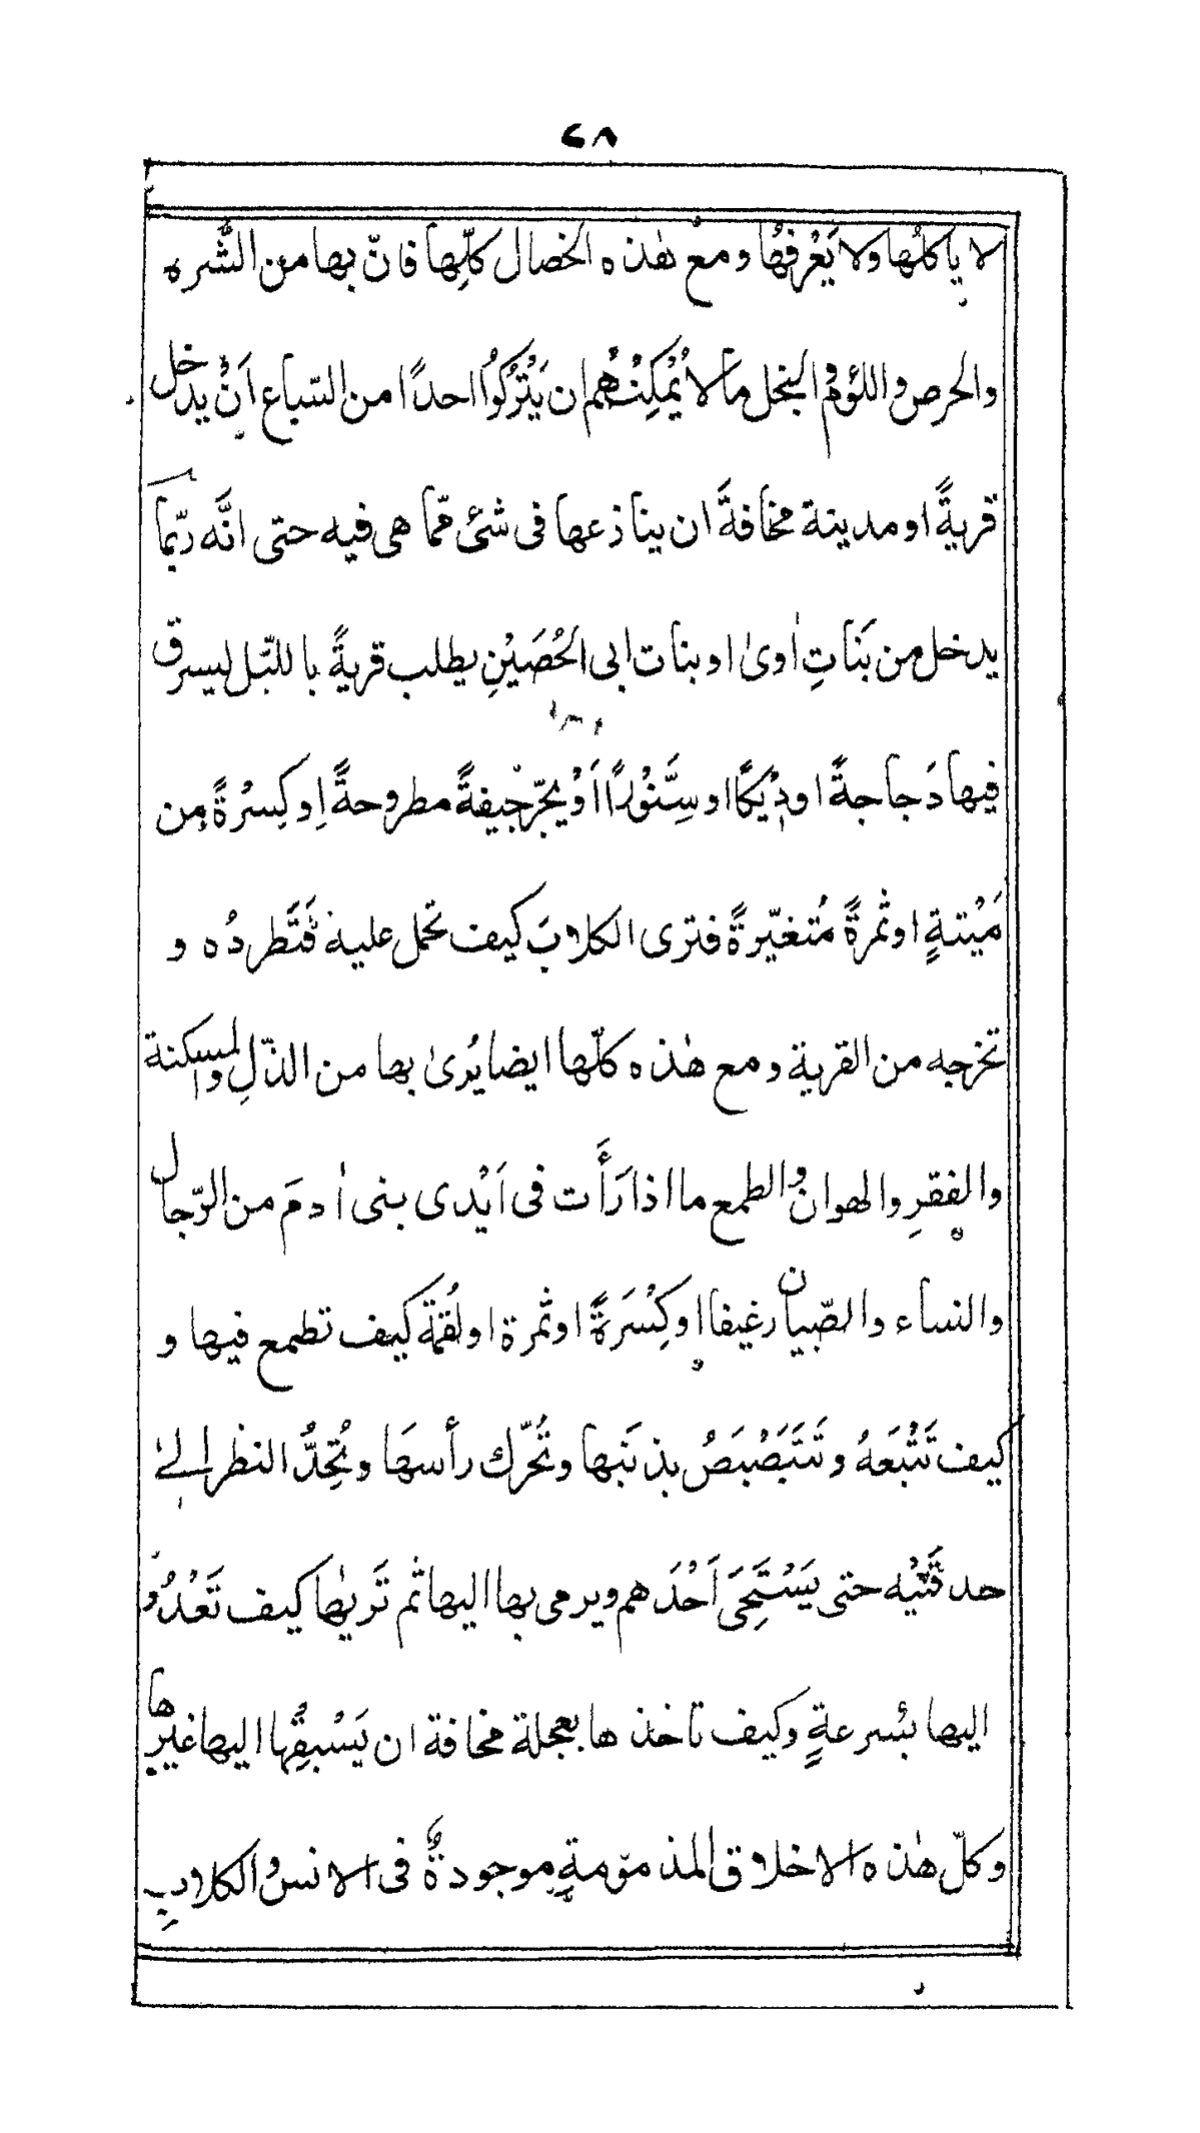 ٤٨
لا ياكلُها ولا يَعْرفُها ومع هٰذه الخصال كلِّها فانّ بها من الشَّره
والحرص واللؤم والبخل ما لا يُمْكِنُهُم ان يَتْرُكُوا احدًا من السّباع اَنْ يدخل
قريةً او مدينة مخافةَ ان ينازعها فى شئ ممّا هى فيه حتى انَّه ربّما
يدخل من بَنَاتِ اٰوىٰ او بنات ابى الحُصَيْنِ يطلب قريةً بالليّل ليسرق
فيها دَجاجةً او دِيْكًا او سِنَّوْرًا اَوْ يجرّ جيفةً مطروحةً او كِسْرةً من
مَيْتةٍ او ثمرةً مُتغيّرةً فترى الكلابَ كيف تحمل عليه فَتَطردُه و
تخرجه من القرية ومع هٰذه كلّها ايضا يُرىٰ بها من الذّلِ والمسكنة
والفقرِ والهوان والطمع ما اذا رَأَت فى اَيْدى بنى اٰدمَ من الرّجال
والنساء والصّبيان رغيفا او كِسْرَةً او ثمرة او لُقمَة كيف تطمع فيها و
كيف تَتْبَعَهُ وتَتَبَصْبَصُ بذنَبها وتُحَرّك رأسهَا وتُحِدُّ النظر الىٰ
حدقَتَيْه حتى يَسْتَحِىَ اَحْدَهم ويرمى بها اليها ثم تَريٰها كيف تَعْدُوْ
اليها بسُرعةٍ وكيف تاخذها بعجلة مخافة ان يَسْبِقُها اليها غيرها
وكلّ هٰذه الاخلاق المذمومةٍ موجودةٌ فى الانس والكلابِ